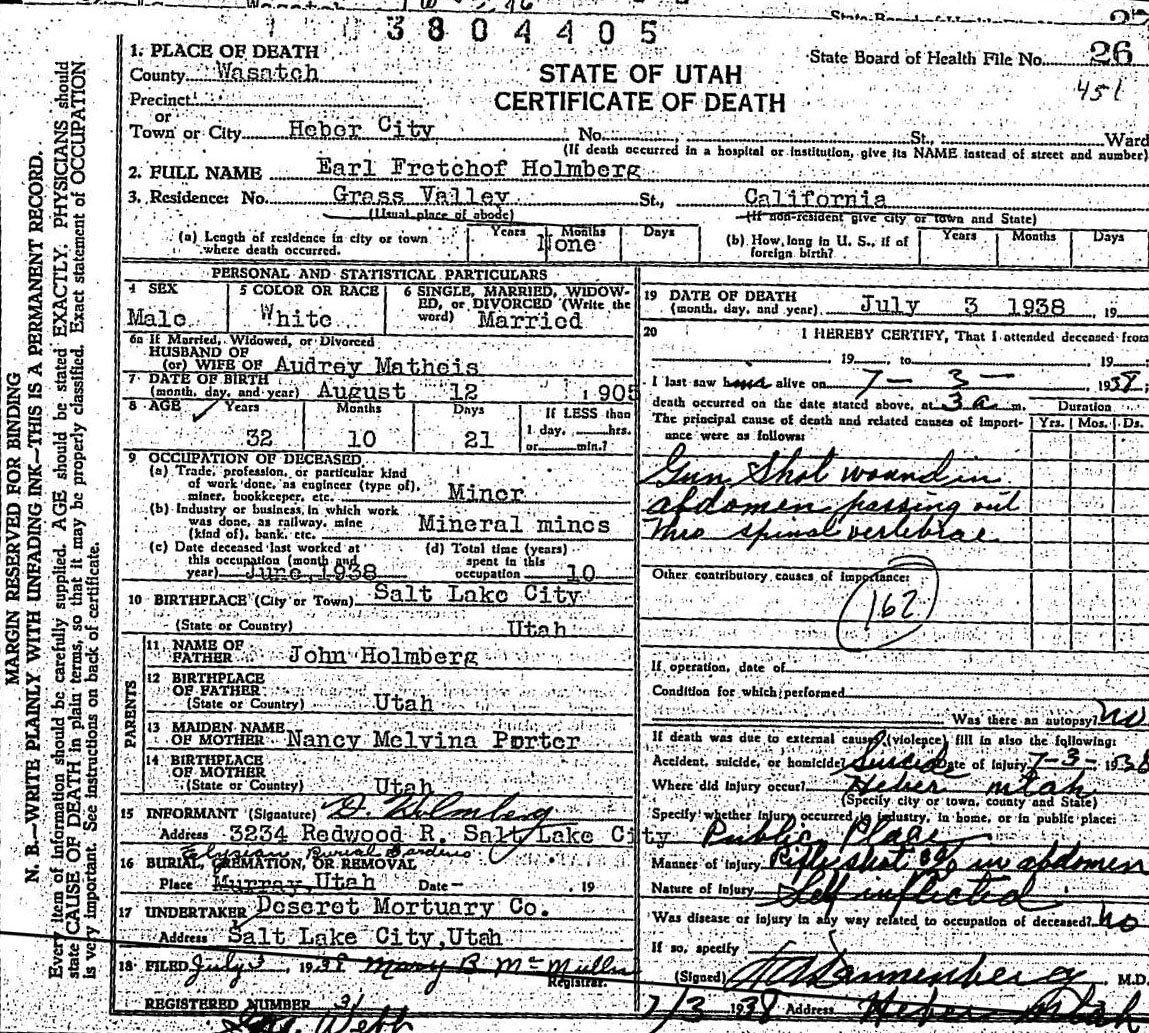 3804405
State Board of Health File No. 26
451
STATE OF UTAH
CERTIFICATE OF DEATH
1. PLACE OF DEATH
County Wasatch
Precinct
or
Town or City Heber City No. St., Ward
(If death occurred in a hospital or institution, give its NAME instead of street and number)
2. FULL NAME Earl Fretchof Holmberg
3. Residence: No. Grass Valley St., California
(Usual place of abode) (If non-resident give city or town and State)
(a) Length of residence in city or town where death occurred. Years Months Days None
(b) How long in U. S., if of foreign birth? Years Months Days
PERSONAL AND STATISTICAL PARTICULARS
4 SEX Male
5 COLOR OR RACE White
6 SINGLE, MARRIED, WIDOWED, or DIVORCED (Write the word) Married
6a If Married, Widowed, or Divorced
HUSBAND OF
(or) WIFE OF Audrey Matheis
7 DATE OF BIRTH
(month, day, and year) August 12 1905
8 AGE Years 32 Months 10 Days 21 If LESS than 1 day, hrs. or min.?
9 OCCUPATION OF DECEASED
(a) Trade, profession, or particular kind
of work done, as engineer (type of),
miner, bookkeeper, etc. Miner
(b) Industry or business in which work
was done, as railway, mine
(kind of), bank, etc. Mineral mines
(c) Date deceased last worked at
this occupation (month and
year) June 1938
(d) Total time (years)
spent in this
occupation 10
10 BIRTHPLACE (City or Town) Salt Lake City
(State or Country) Utah
PARENTS
11 NAME OF
FATHER John Holmberg
12 BIRTHPLACE
OF FATHER
(State or Country) Utah
13 MAIDEN NAME
OF MOTHER Nancy Melvina Porter
14 BIRTHPLACE
OF MOTHER
(State or Country) Utah
15 INFORMANT (Signature) D. Holmberg
Address 3234 Redwood R. Salt Lake City
Elysian Burial Gardens
16 BURIAL, CREMATION, OR REMOVAL
Place Murray, Utah Date 19
17 UNDERTAKER Deseret Mortuary Co.
Address Salt Lake City, Utah
18 FILED July 3, 1938 Mary B McMullin
Registrar.
REGISTERED NUMBER 31
Webb
19 DATE OF DEATH
(month, day, and year) July 3 1938, 19
20 I HEREBY CERTIFY, That I attended deceased from
, 19 , to , 19
I last saw him alive on 7-3-1938;
death occurred on the date stated above, at 3 a m. Duration
The principal cause of death and related causes of importance were as follows: Yrs. Mos. Ds.
Gun Shot wound in
abdomen passing out
thro spinal vertebrae
Other contributory causes of importance:
162
If operation, date of
Condition for which performed
Was there an autopsy? no
If death was due to external causes (violence) fill in also the following:
Accident, suicide, or homicide? Suicide Date of injury 7-3-1938
Where did injury occur? Heber Utah
(Specify city or town, county and State)
Specify whether injury occurred in industry, in home, or in public place:
Public Place
Manner of injury Rifle shot in abdomen
Nature of injury Self inflected
Was disease or injury in any way related to occupation of deceased? no
If so, specify
(Signed) Dannenberg M.D.
7/3 1938 Address Heber Utah
MARGIN RESERVED FOR BINDING
N. B.—WRITE PLAINLY WITH UNFADING INK—THIS IS A PERMANENT RECORD.
Every item of information should be carefully supplied. AGE should be stated EXACTLY. PHYSICIANS should
state CAUSE OF DEATH in plain terms, so that it may be properly classified. Exact statement of OCCUPATION
is very important. See instructions on back of certificate.